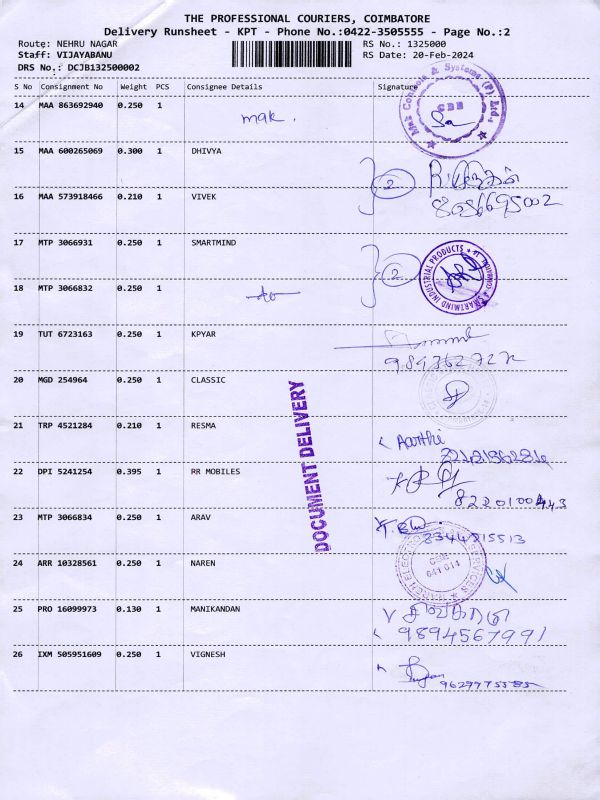 THE PROFESSIONAL COURIERS, COIMBATORE
Delivery Runsheet - KPT - Phone No.:0422-3505555 - Page No.:2
Route: NEHRU NAGAR RS No.: 1325000
Staff: VIJAYABANU RS Date: 20-Feb-2024
DRS No.: DCJB132500002
S No Consignment No Weight PCS Consignee Details Signature
14 MAA 863692940 0.250 1 mak.
15 MAA 600265069 0.300 1 DHIVYA
2
16 MAA 573918466 0.210 1 VIVEK
17 MTP 3066931 0.250 1 SMARTMIND
2
SMARTMIND INDUSTRIAL PRODUCTS
18 MTP 3066832 0.250 1 do
19 TUT 6723163 0.250 1 KPYAR
20 MGD 254964 0.250 1 CLASSIC
21 TRP 4521284 0.210 1 RESMA Aarthi
22 DPI 5241254 0.395 1 RR MOBILES
DOCUMENT DELIVERY
23 MTP 3066834 0.250 1 ARAV
8344215513
24 ARR 10328561 0.250 1 NAREN
CBE
641 014
25 PRO 16099973 0.130 1 MANIKANDAN
9894567991
26 IXM 505951609 0.250 1 VIGNESH